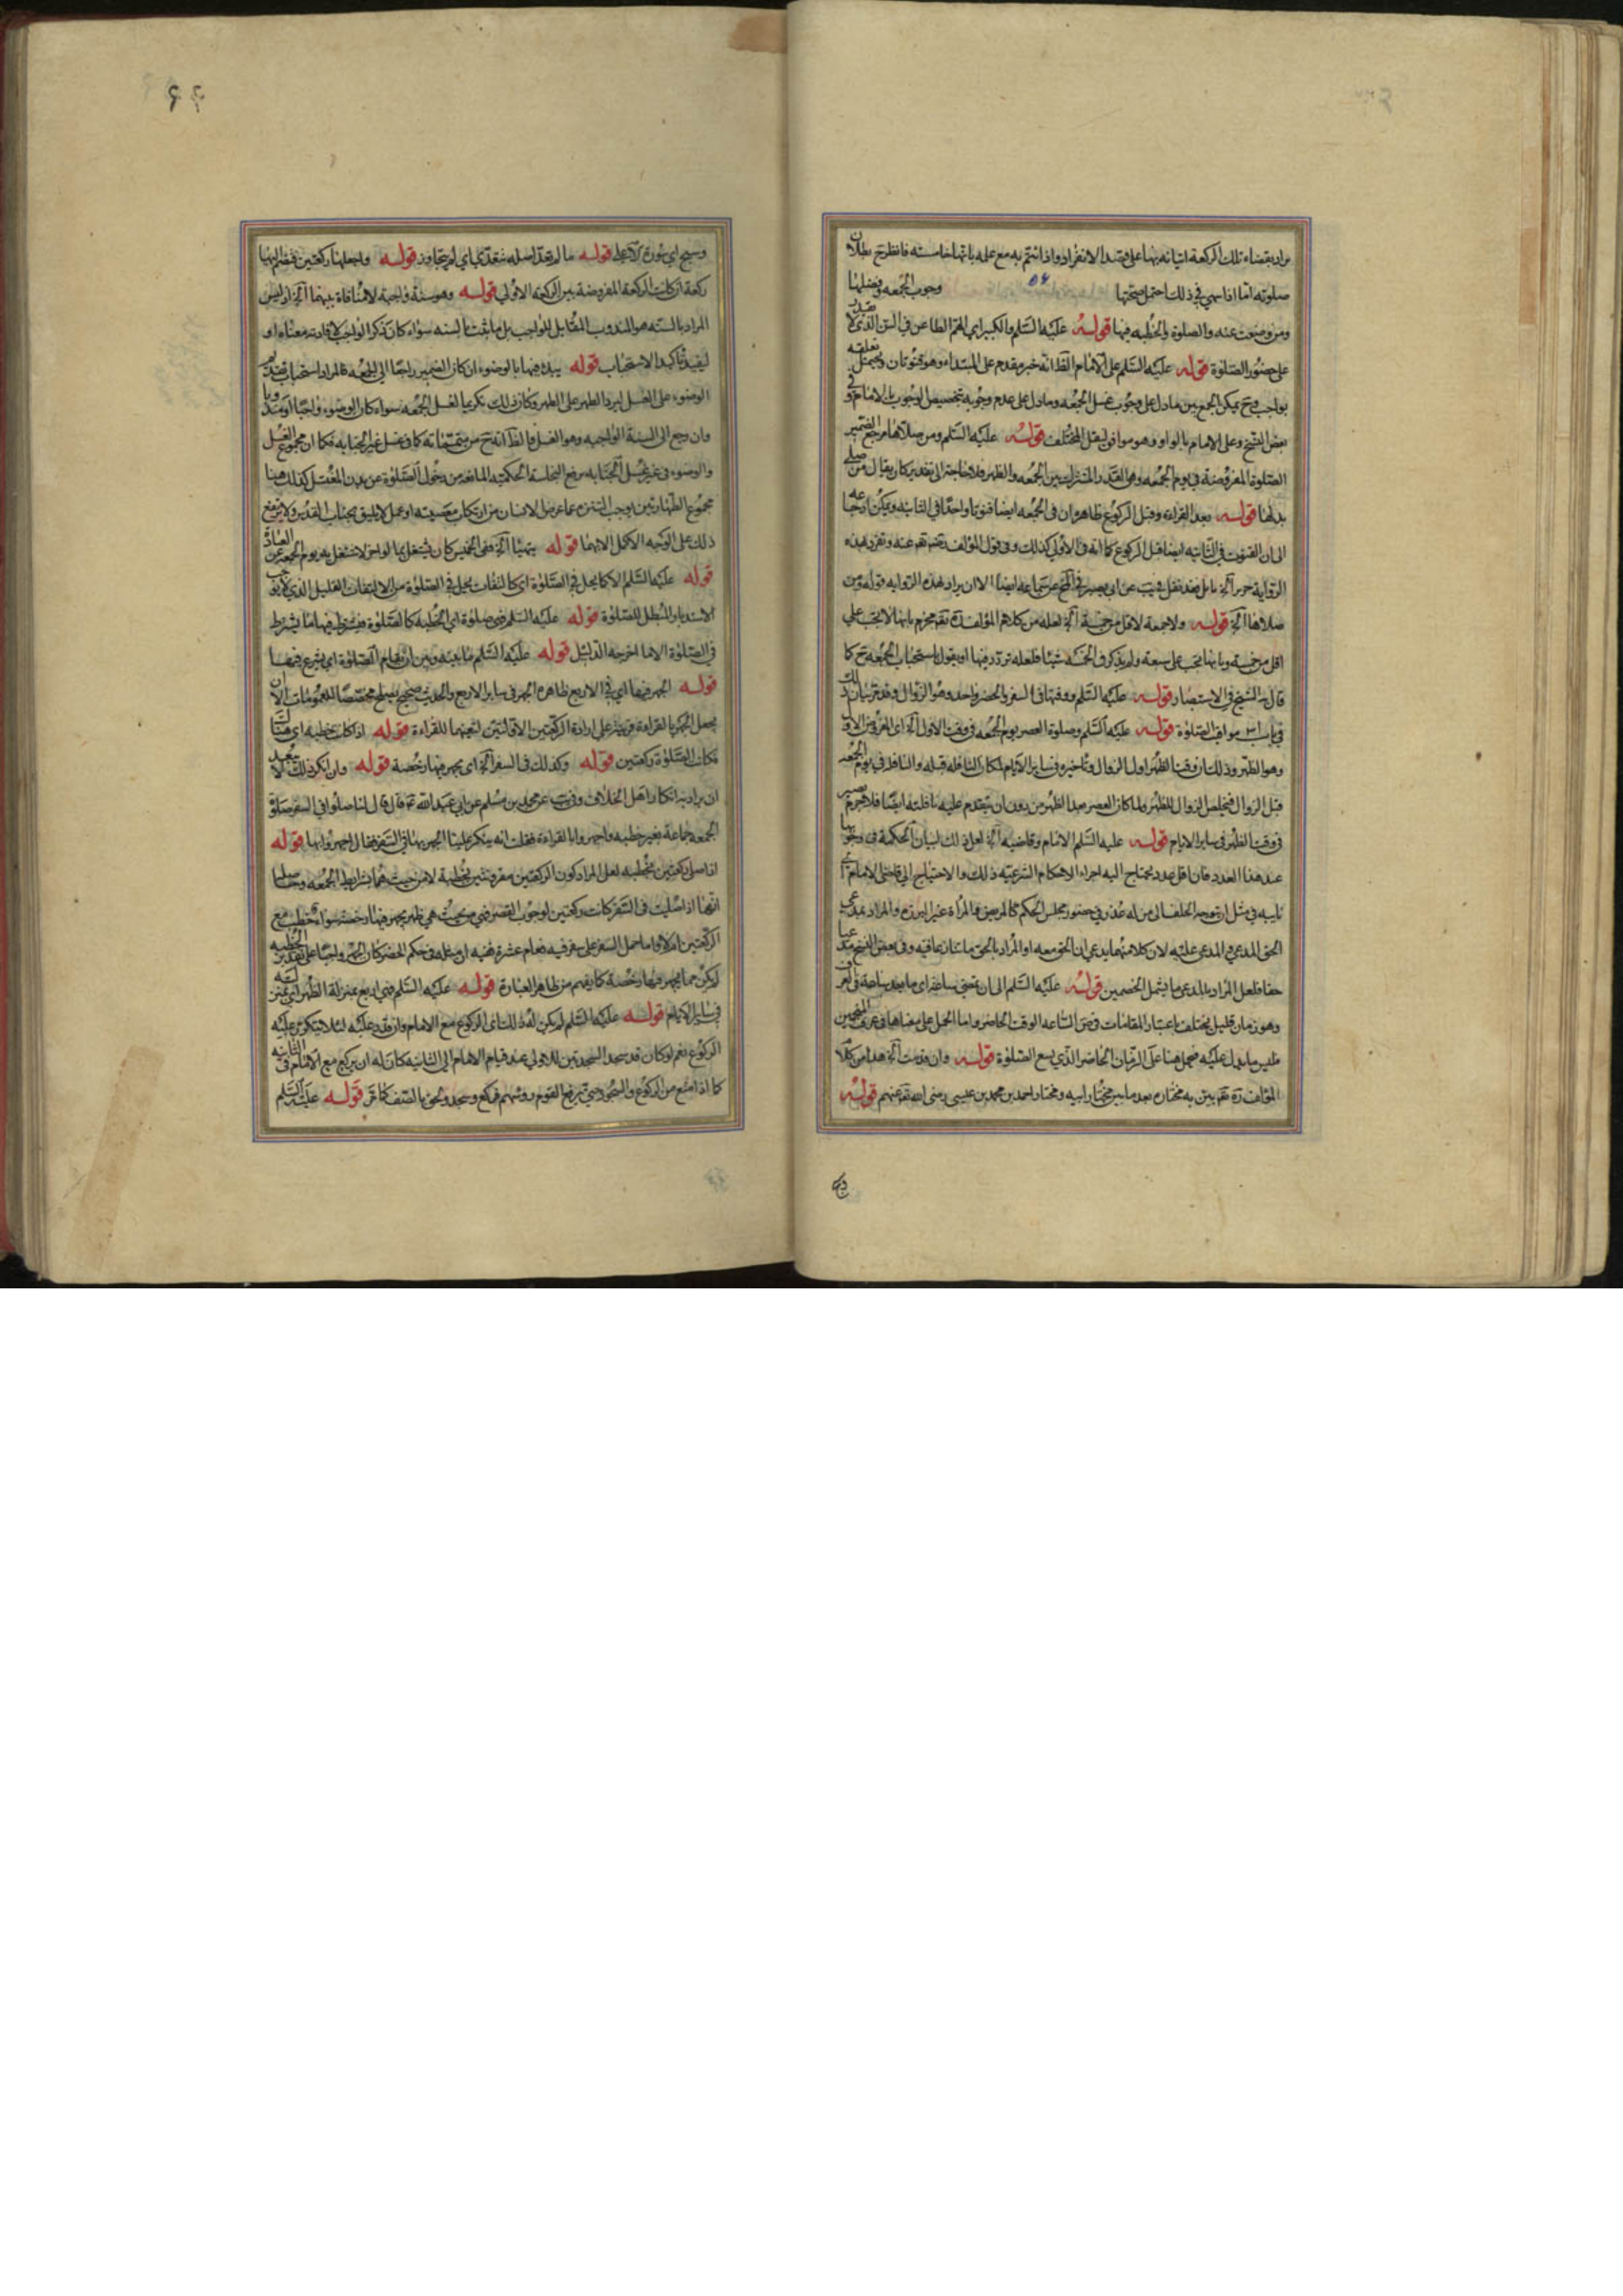 مراد بقضاء تلك الركعة اتيانه بها على قصد الانفراد واذا ائتم به مع علمه بانها خامسة فانظرح بطلان
صلوته اما اذا سهى في ذلك احتمل صحتها ٥٤ وجوب الجمعه وفضلها
ومن وضعت عنه والصلوة والخطبه فيها قوله عليه السلم والكبير اي الهم الطاعن في السن الذي لا يقدر
على حضور الصلوة قوله عليه السلم على الامام الظ انه خبر مقدم على المبتداء وهو قنوتان ويحتمل تعلقه
بواجب وح يمكن الجمع بين ما دل على وجوب غسل الجمعه وما دل على عدم وجوبه بتخصيص الوجوب بالامام وفي
بعض النسخ وعلى الامام بالواو وهو موافق لنقل المختلف قوله عليه السلم ومن صلاها مرجع الضمير
الصلوة المفروضة في يوم الجمعه وهي القدر المشترك بين الجمعه والظهر فلا حاجة الى تقدير كان يقال من صلى
بدلها قوله بعد القراءة وقبل الركوع ظاهره ان في الجمعه ايضا قنوتا واحدا في الثانيه ويمكن ارجاعه
الى ان القنوت في الثانيه ايضا قبل الركوع كما انه في الاولى كذلك وفي قول المؤلف تفرد بهذه
الرواية حريز الخ تامل فقد نقل عن ابي بصير الا ان يراد بهذه الروايه قوله ومن
صلاها الخ قوله ولا جمعة لاقل من خمسة الخ لعله من كلام المؤلف ره فقد جزم بانها لا تجب على
اقل من خمسة وبانها تجب على سبعة ولم يذكر في الخمسه شيئا فلعله تردد فيها او يقول باستحباب الجمعه ح كما
قال به الشيخ في الاستبصار قوله عليه السلم ووقتها في السفر والحضر واحد وهو الزوال وقد مر بيان ذلك
في باب مواقيت الصلوة قوله عليه السلم وصلوة العصر يوم الجمعه في وقت الاولى الخ اي المفروض الاول
وهو الظهر وذلك ان وقت الظهر اول الزوال وتاخيره في ساير الايام لمكان النافله قبله والنافله في يوم الجمعه
قبل الزوال فيخلص الزوال للظهر ولما كان العصر بعد الظهر من دون ان يتقدم عليه نافلته ايضا فلا جرم يصير
في وقت الظهر في ساير الايام قوله عليه السلم الامام وقاضيه الخ لعل ذلك لبيان الحكمة في وجوبها
عند هذا العدد فان اقل عدد يحتاج اليه اجراء الاحكام الشرعيه ذلك والاحتياج الى قاضي الامام اي
نايبه في مثل ان توجه الحلف الى من له عذر في حضور مجلس الحكم كالمريض والمراة غير البرزه والمراد بمدعي
الحق المدعي والمدعى عليه لان كلا منهما يدعي ان الحق معه او المراد بالحق ما تنازعا فيه وفي بعض النسخ مدعيا
حقا فلعل المراد بالمدعي ما يشمل الخصمين قوله عليه السلم الى ان تمضي ساعة اي ما يعد ساعة في العرف
وهو زمان قليل يختلف باعتبار المقامات وفي ص الساعه الوقت الحاضر واما الحمل على معناها في عرف المنجمين
فليس ما يدل عليه فيحمل هنا على الزمان الحاضر الذي يسع الصلوة قوله وان قدمت الخ هذا من كلام
المؤلف ره فقد بين به مختاره بعد ما بين مختار ابيه ومختار احمد بن محمد بن عيسى رضي الله تعالى عنهم قوله
وسبح اي سورة الاعلى قوله ما لم يتعد اصله يتعدى اي لم يتجاوز قوله واجعلها ركعتين فتضم اليها
ركعة ان كانت الركعة المفروضة بين الركعه الاولى قوله وهو سنة واجبة لا منافاة بينهما الخ اذ ليس
المراد بالسنه هو المندوب المقابل للواجب بل ما ثبت بالسنه سواء كان ذكر الواجب لافادته معناه او
ليفيد تاكيد الاستحباب قوله يبدء فيها بالوضوء ان كان الضمير راجعا الى الجمعه فالمراد استحباب تقديم
الوضوء على الغسل ليرد الطهر على الطهر وكان ذلك تكريما لغسل الجمعه سواء كان الوضوء واجبا او مندوبا
وان رجع الى السنة الواجبه وهو الغسل فالظ انه ح من متمماته كما في غسل غير الجنابه فكما ان مجموع الغسل
والوضوء في غير غسل الجنابه يرفع النجاسة الحكميه المانعه من دخول الصلوة عن بدن المغتسل كذلك هنا
مجموع الطهارتين يوجب التنزه عما عرض الانسان من ارتكاب معصيته او عمل لا يليق بجناب القدس ولا يرتفع
ذلك على الوجه الاكمل الا بهما قوله يتهيا الخ ففي الخميس كان يشتغل بما لواخر لاشتغل به يوم الجمعه عن العبادة
قوله عليه السلم الا كما يحل في الصلوة اي كالتفات يحل في الصلوة من الالتفات القليل الذي لا يوجب
الاستدبار المبطل للصلوة قوله عليه السلم فهي صلوة اي الخطبة كالصلوة فيشترط فيها ما يشترط
في الصلوة الا ما اخرجه الدليل قوله عليه السلم ما بينه وبين ان يقام الصلوة اي يشرع فيها
قوله الجهر فيها اي في الاربع ظاهره الجهر في ساير الاربع والحديث صحيح يصلح مخصصا للعمومات الا ان
يجعل الجهر بالقراءة قرينة على ارادة الركعتين الاوليتين لتعينهما للقراءة قوله اذا كانت خطبه اي هناك
فكانت الصلوة ركعتين قوله وكذلك في السفر الخ اي يجهر فيها رخصة قوله وان انكر ذلك لا يبعد
ان يراد به انكار اهل الخلاف وفي يب عن محمد بن مسلم عن ابي عبد الله ع قال قال لنا صلوا في السفر صلوة
الجمعه جماعة بغير خطبه واجهروا بالقراءة فقلت انه ينكر علينا الجهر بها في السفر فقال اجهروا بها قوله
اذا صلى ركعتين بخطبة لعل المراد كون الركعتين مقرونتين بخطبة لا من حيث هما بشرايط الجمعه وحاصله
انها اذا صليت في السفر كانت ركعتين لوجوب القصر فهي من حيث هي ظهر يجهر فيها رخصة سواء خطب مع
الركعتين ام لا واما حمل السفر على سفر فيه مقام عشرة ففيه ان مثله في حكم الحضر كان الجهر واجبا على تقدير الخطبه
لم يكن مما يجهر فيها رخصة كما يفهم من ظاهر العبارة قوله عليه السلم فهي اربع بمنزلة الظهر اي بمنزلته
في ساير الايام قوله عليه السلم لم يكن له ذلك اي الركوع مع الامام وان قدر عليه لئلا يتكرر عليه
الركوع نعم لو كان قد سجد السجدتين للاولى عند قيام الامام الى الثانيه كان له ان يركع مع الامام في الثانيه
كما اذا منع من الركوع والسجود حتى يرفع القوم رؤسهم فركع وسجد ولحق بالصف كما مر قوله عليه السلم